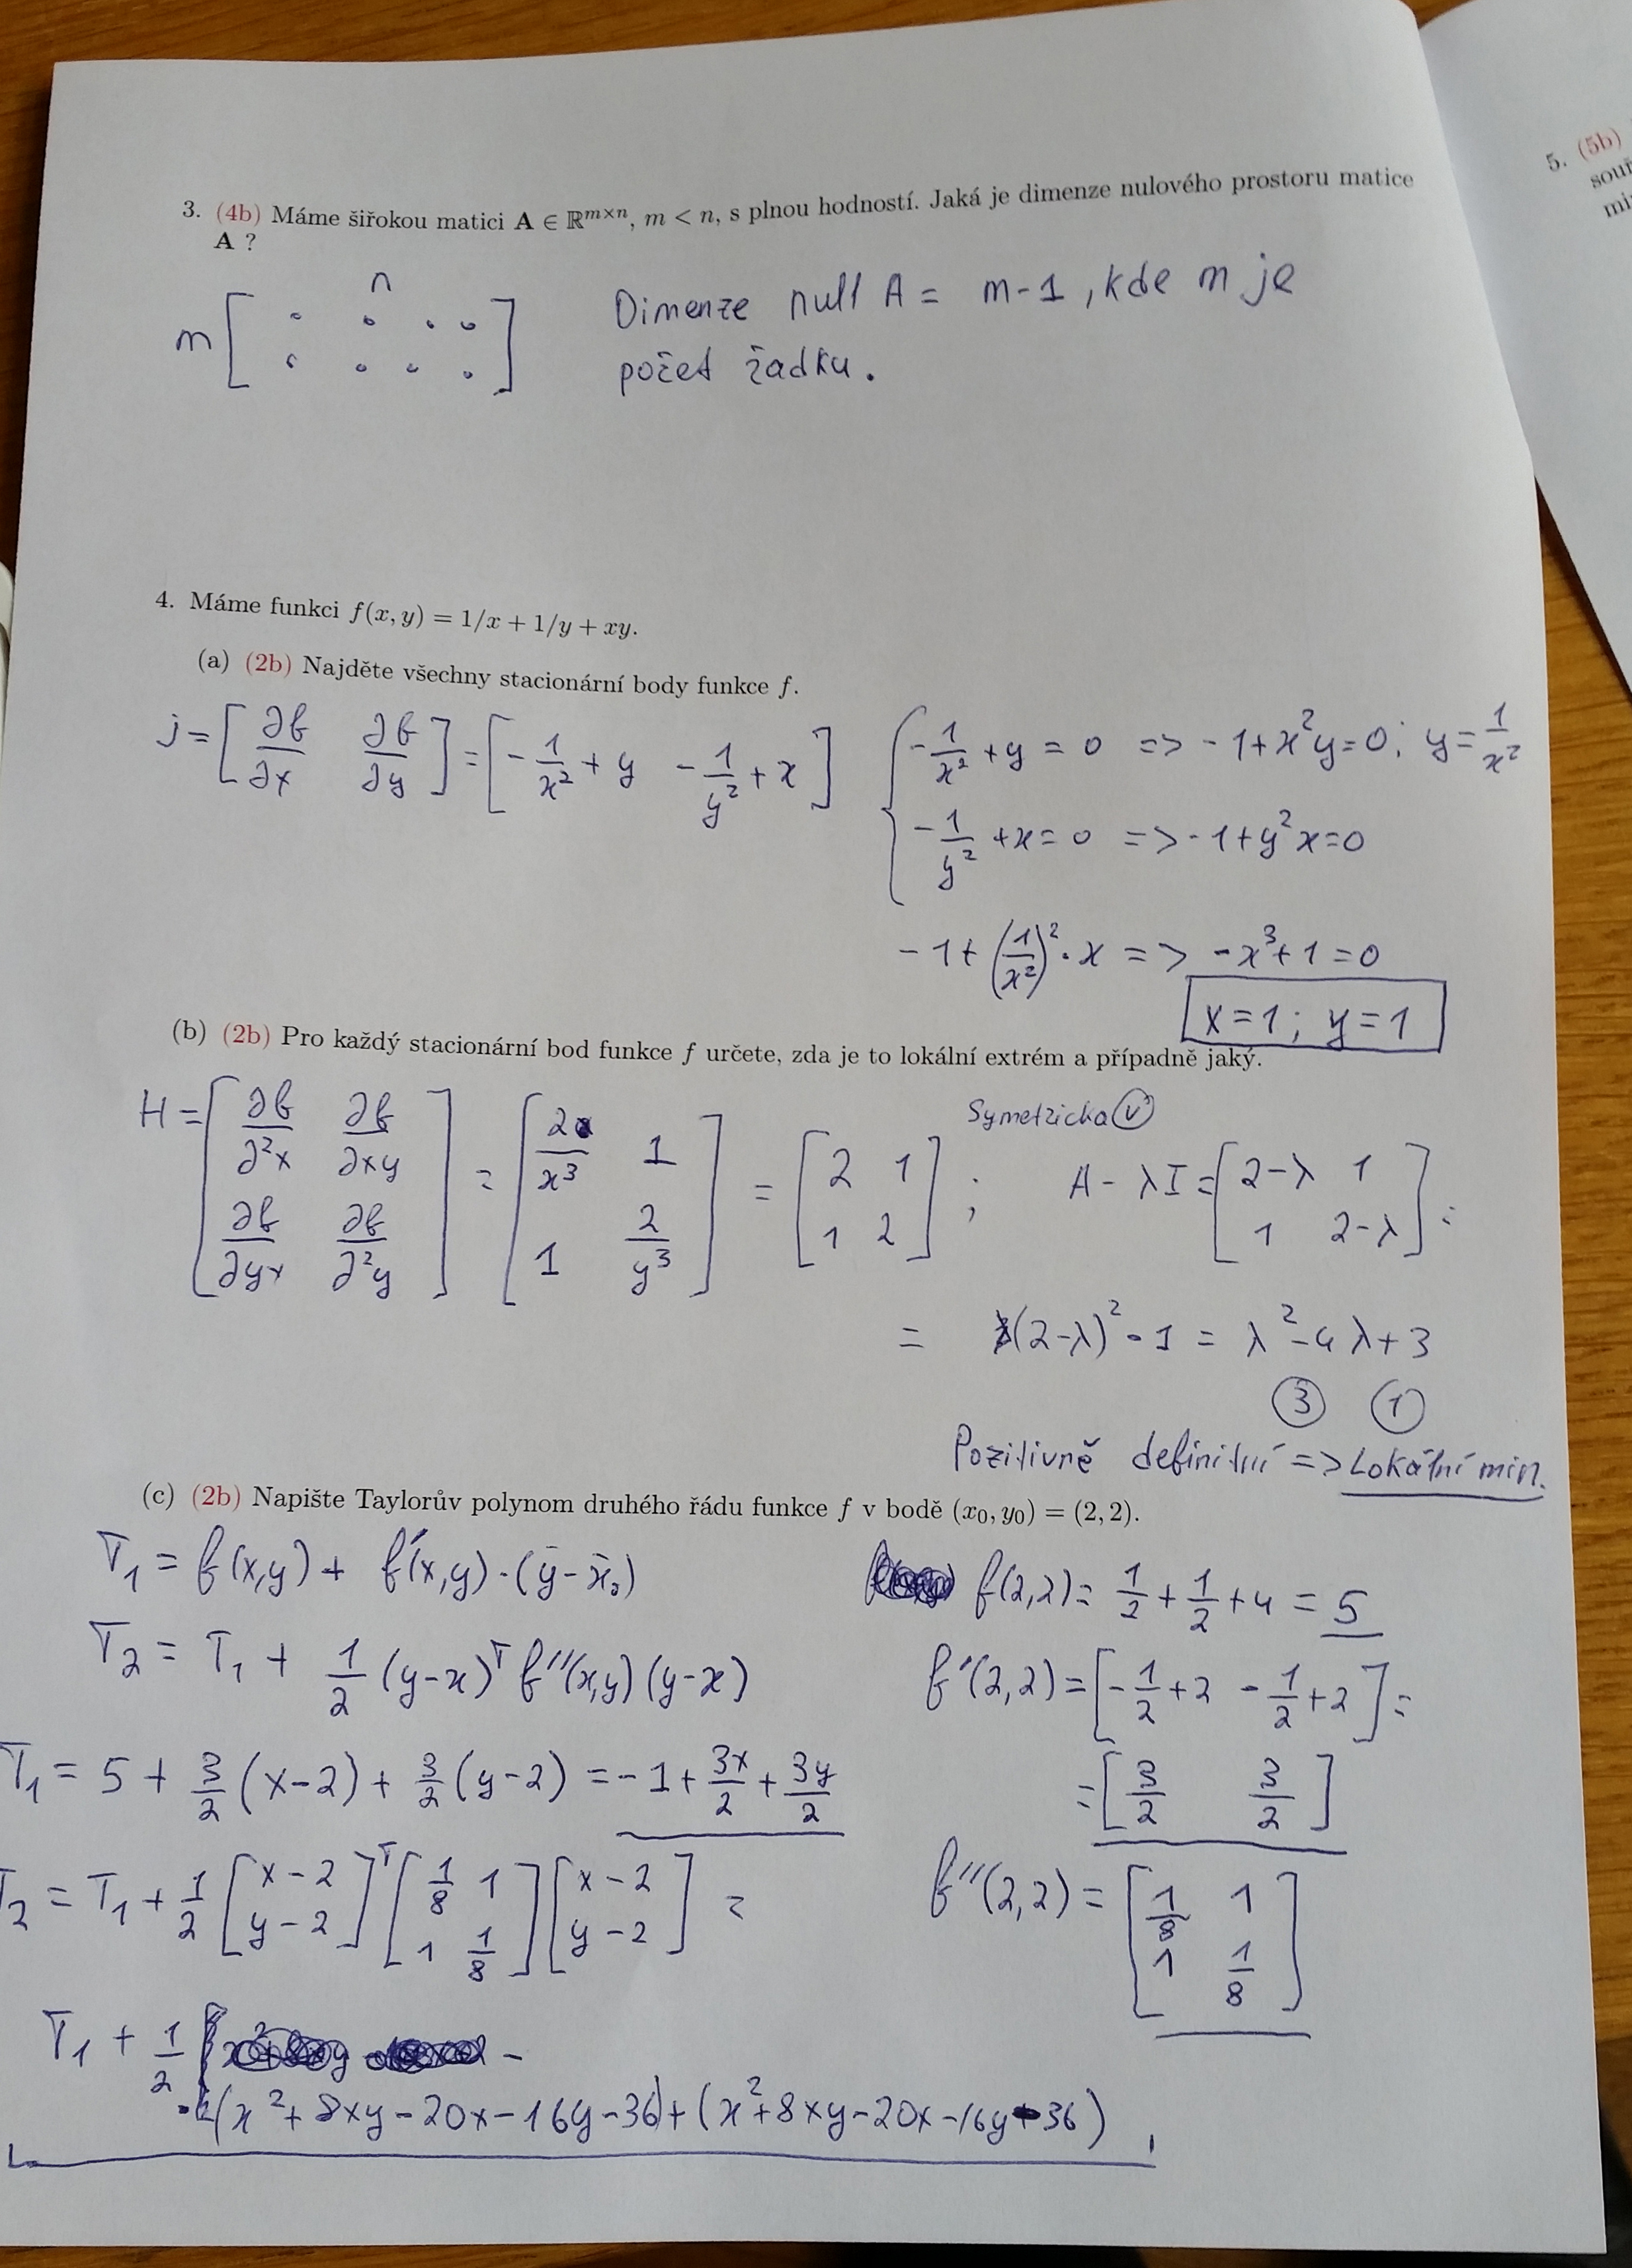 3. (4b) Máme širokou matici A ∈ ℝ^{m×n}, m < n, s plnou hodností. Jaká je dimenze nulového prostoru matice
A ?
n
m [ ]
Dimenze null A = m-1, kde m je
počet řadku.
5. (5b)
souř
mi
4. Máme funkci f(x, y) = 1/x + 1/y + xy.
(a) (2b) Najděte všechny stacionární body funkce f.
j = [∂f/∂x ∂f/∂y] = [-1/x² + y -1/y² + x]
{ -1/x² + y = 0 => -1+x²y=0; y=1/x²
-1/y² + x = 0 => -1+y²x=0
-1+(1/x²)²·x => -x³+1=0
x=1; y=1
(b) (2b) Pro každý stacionární bod funkce f určete, zda je to lokální extrém a případně jaký.
Symetricka (v)
H = [∂f/∂²x ∂f/∂xy; ∂f/∂yx ∂f/∂²y] = [2/x³ 1; 1 2/y³] = [2 1; 1 2]; A-λI = [2-λ 1; 1 2-λ] =
= (2-λ)²-1 = λ²-4λ+3
3 1
Pozitivně definitní => Lokální min.
(c) (2b) Napište Taylorův polynom druhého řádu funkce f v bodě (x₀, y₀) = (2, 2).
T₁ = f(x,y) + f'(x,y)·(y-x₀)
f(2,2) = 1/2 + 1/2 + 4 = 5
T₂ = T₁ + 1/2 (y-x)ᵀ f''(x,y)(y-x)
f'(2,2) = [-1/2+2 -1/2+2] =
T₁ = 5 + 3/2(x-2) + 3/2(y-2) = -1 + 3x/2 + 3y/2
= [3/2 3/2]
T₂ = T₁ + 1/2 [x-2; y-2]ᵀ [1/8 1; 1 1/8] [x-2; y-2] =
f''(2,2) = [1/8 1; 1 1/8]
T₁ + 1/2
(x²+8xy-20x-16y-36)+(x²+8xy-20x-16y-36)